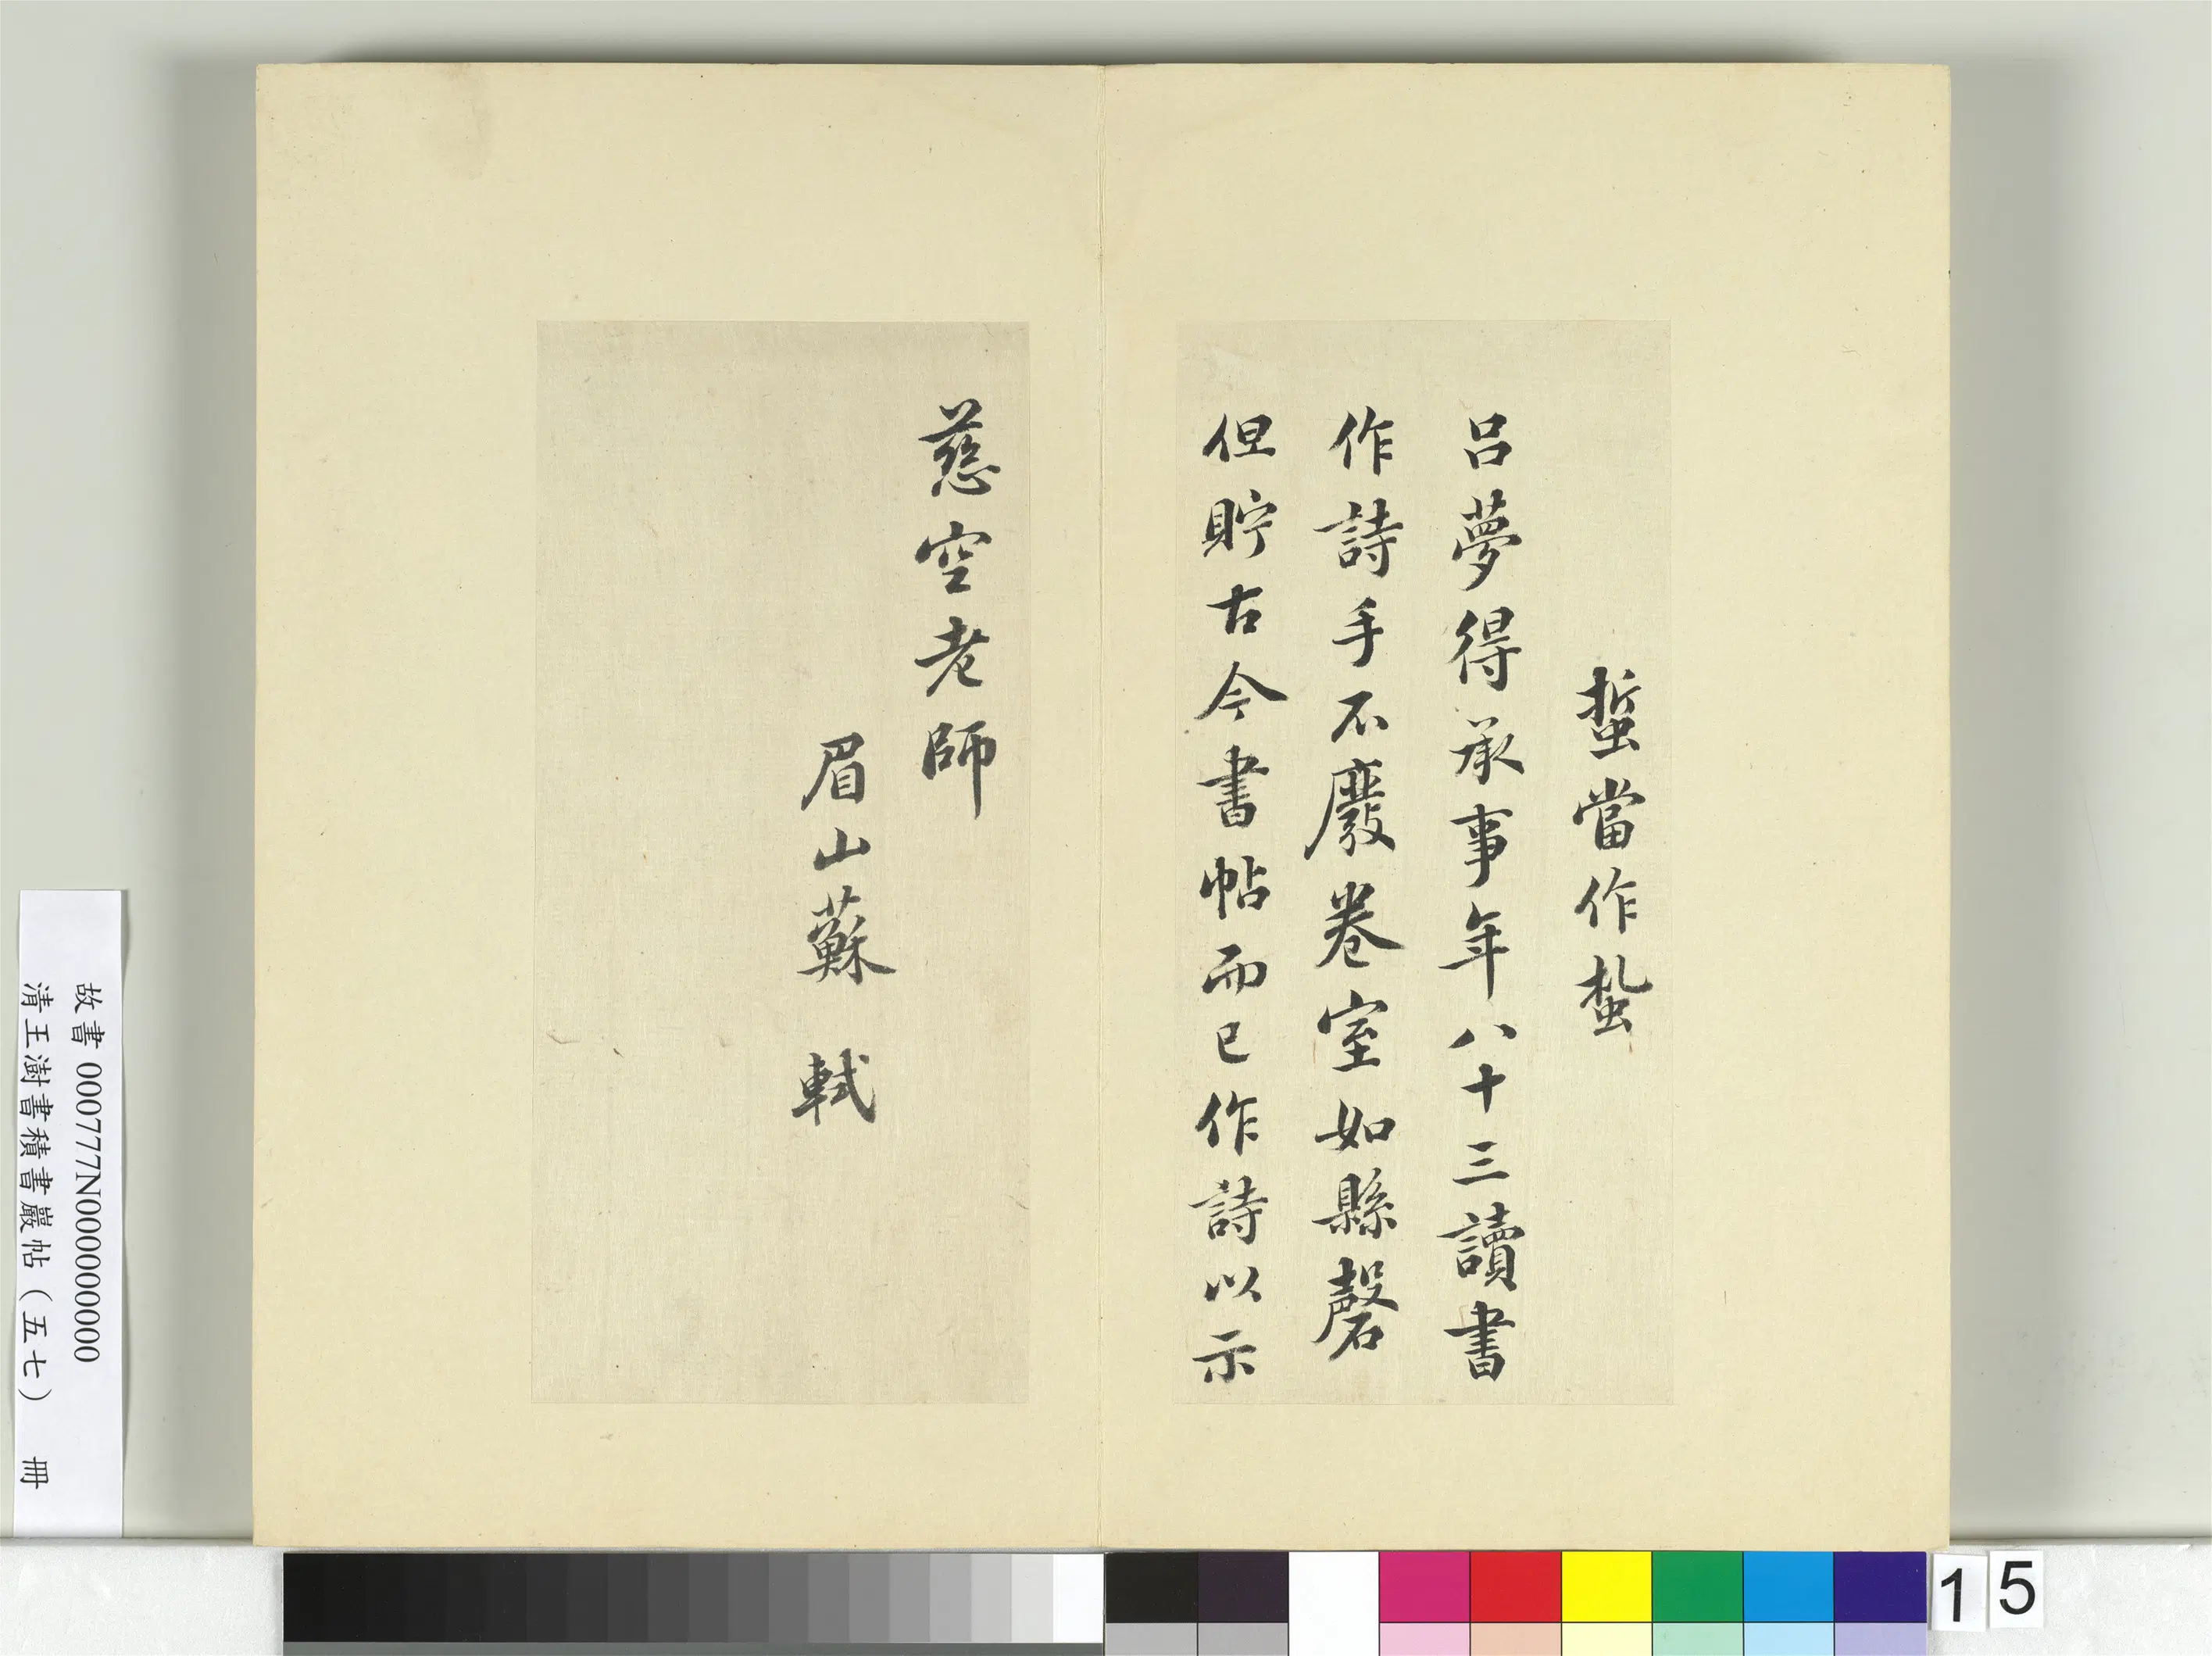 蜇當作蜇
呂夢得承事年八十三讀書
作詩手不廢卷室如縣磬
但貯古今書帖而已作詩以示
慈空老師
眉山蘇軾
故書 000777N000000000
清王澍書積書巖帖(五七) 冊
15